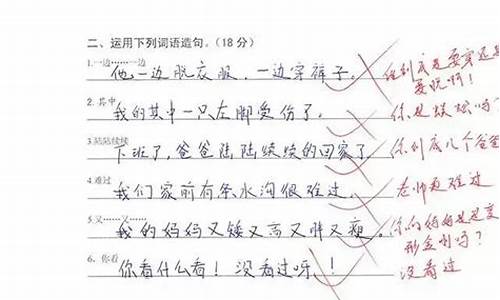 二、运用下列词语造句。(18分)
1.一边……一边
他一边脱衣服，一边穿裤子。
他到底是要穿还是要脱啊！
2. 其中
我的其中一只左脚受伤了。
你是蜈蚣吗？
3.陆陆续续
下班了，爸爸陆陆续续的回家了。
你到底几个爸爸
4.难过
我们家前有条水沟很难过。
老师更难过
5.又……又……
我的妈妈又矮又高又胖又瘦。
你的妈妈是变形金刚吗？
6、你看
你看什么看！没看过呀！！
没看过